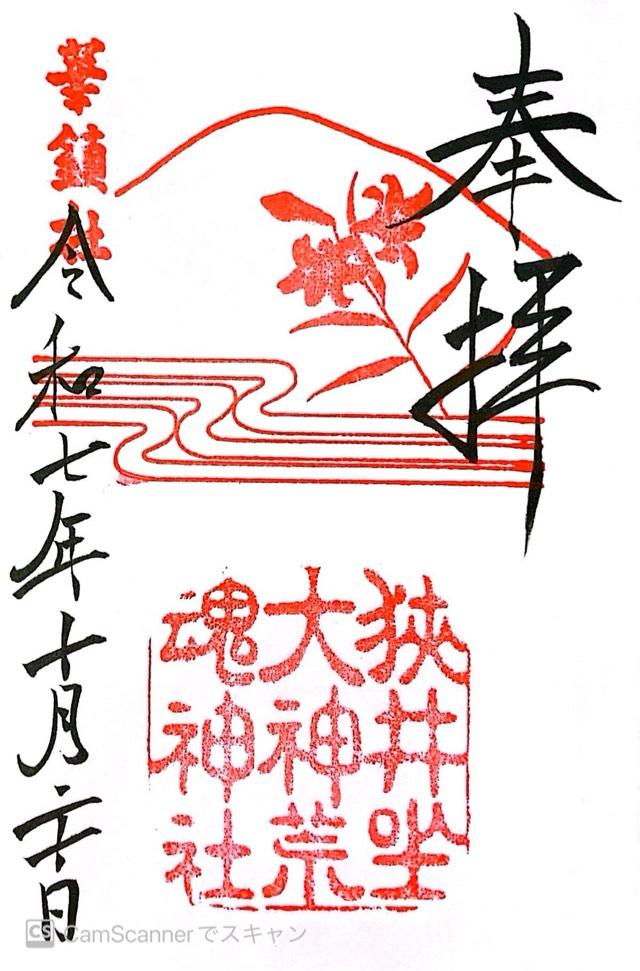 奉拝
狭井坐
大神荒
魂神社
華鎮社
令和七年十月二十日
CS CamScannerでスキャン